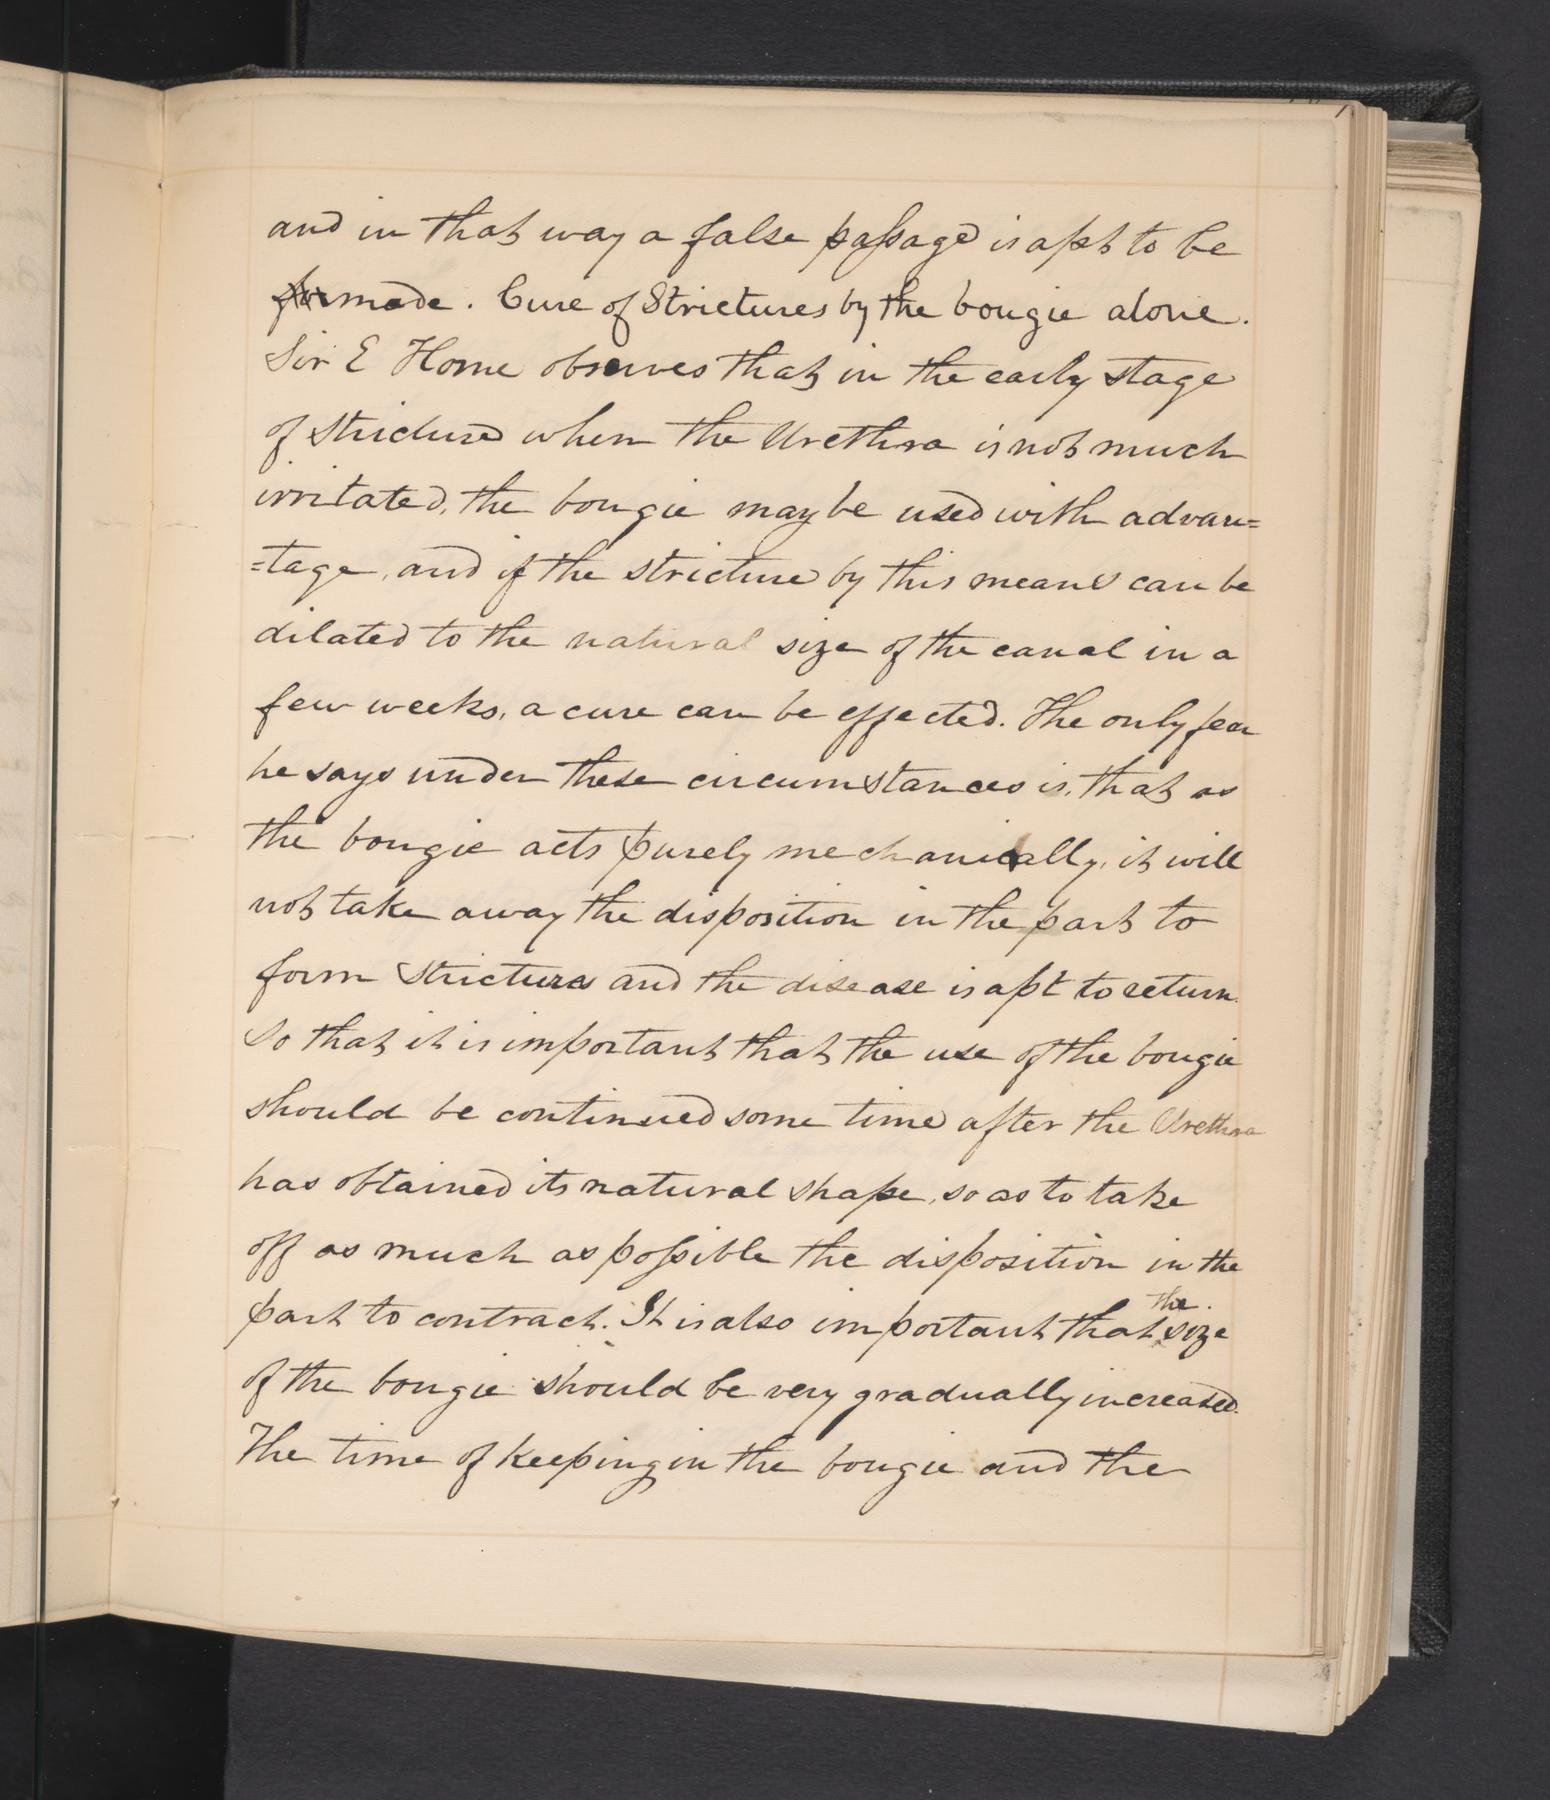 and in that way a false passage is apt to be
made. Cure of Strictures by the bougie alone.
Sir E Home observes that in the early stage
of stricture when the Urethra is not much
irritated, the bougie may be used with advan=
=tage, and if the stricture by this means can be
dilated to the natural size of the canal in a
few weeks, a cure can be effected. The only fear
he says under these circumstances is, that as
the bougie acts purely mechanically, it will
not take away the disposition in the part to
form stricture and the disease is apt to return.
So that it is important that the use of the bougie
should be continued some time after the Urethra
has obtained its natural shape, so as to take
off as much as possible the disposition in the
part to contract. It is also important that the size
of the bougie should be very gradually increased.
The time of keeping in the bougie and the